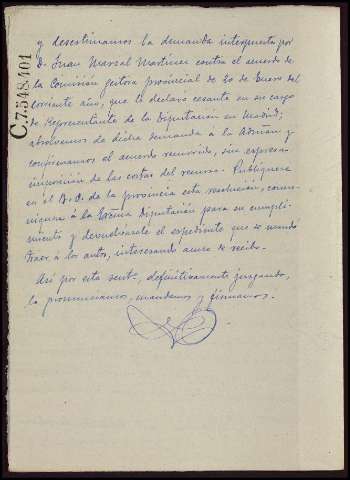 C.7.548.101
y desestimamos la demanda interpuesta por
D. Juan Marsal Martínez contra el acuerdo de
la Comisión gestora provincial de 20 de Enero del
corriente año, que le declaró cesante en su cargo
de Representante de la Diputación en Madrid;
absolvemos de dicha demanda á la Admón y
confirmamos el acuerdo recurrido, sin expresa
imposición de las costas del recurso. Publíquese
en el B. O. de la provincia esta resolución, comu-
níquese á la Excma Diputación para su cumpli-
miento y devuélvasele el expediente que se mandó
traer á los autos, interesando acuse de recibo.
Así por esta sentª, definitivamente juzgando,
lo pronunciamos, mandamos y firmamos.